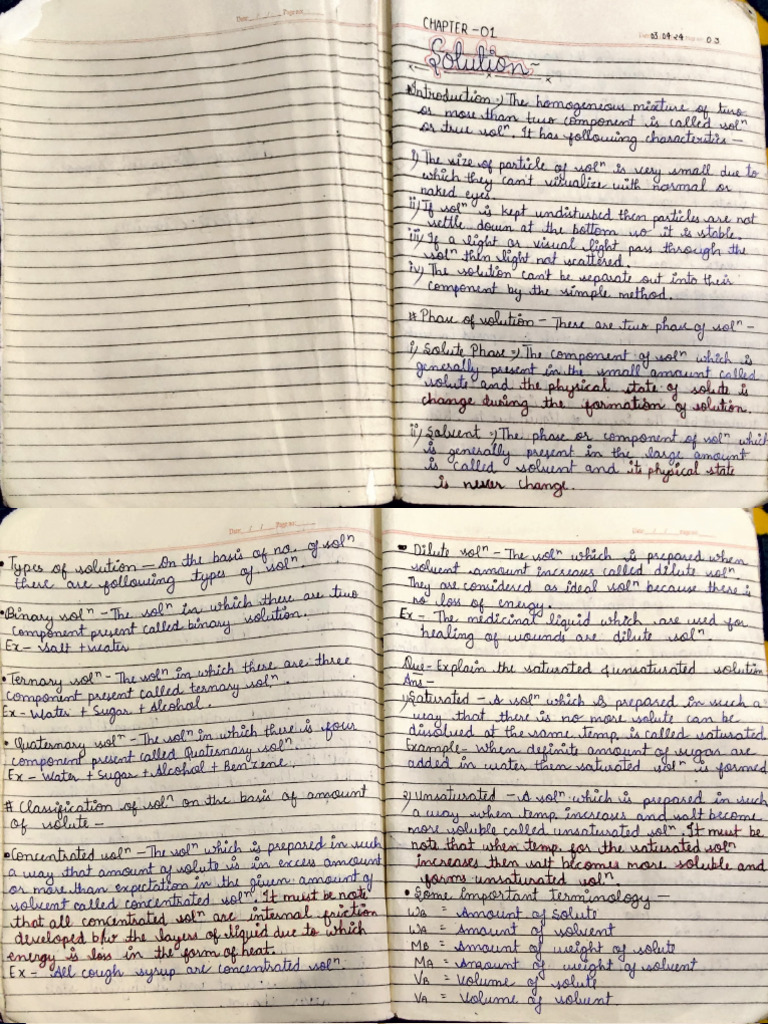 Date __/__/__ Page no. ____
CHAPTER - 01
03 04 24 03
Solution -
Introduction :) The homogeneous mixture of two
or more than two component is called solⁿ
or true solⁿ. It has following characteristics —
i) The size of particle of solⁿ is very small due to
which they can't visualize with normal or
naked eyes.
ii) If solⁿ is kept undisturbed then particles are not
settle down at the bottom so it is stable.
iii) If a light or visual light pass through the
solⁿ then light not scattered.
iv) The solution can't be separate out into their
component by the simple method.
# Phase of solution - There are two phase of solⁿ -
i) Solute Phase :) The component of solⁿ which is
generally present in the small amount called
solute and the physical state of solute is
change during the formation of solution.
ii) Solvent :) The phase or component of solⁿ which
is generally present in the large amount
is called solvent and its physical state
is never change.
Date __/__/__ Page no. ____
• Types of solution — On the basis of no. of solⁿ
there are following types of solⁿ.
• Binary solⁿ - The solⁿ in which there are two
component present called binary solution.
Ex - Salt + water
• Ternary solⁿ - The solⁿ in which there are three
component present called ternary solⁿ.
Ex - Water + Sugar + Alcohol.
• Quaternary solⁿ - The solⁿ in which there is four
component present called Quaternary solⁿ.
Ex - Water + Sugar + Alcohol + Benzene.
# Classification of solⁿ on the basis of amount
of solute -
• Concentrated solⁿ - The solⁿ which is prepared in such
a way that amount of solute is in excess amount
or more than expectation in the given amount of
solvent called concentrated solⁿ. It must be note
that all concentrated solⁿ are internal friction
developed b/w the layers of liquid due to which
energy is loss in the form of heat.
Ex - All cough syrup are concentrated solⁿ.
• Dilute solⁿ - The solⁿ which is prepared when
solvent amount increases called dilute solⁿ.
They are considered as ideal solⁿ because there is
no loss of energy.
Ex - The medicinal liquid which are used for
healing of wounds are dilute solⁿ.
Que - Explain the saturated & unsaturated solution
Ans -
1) Saturated - A solⁿ which is prepared in such a
way that there is no more solute can be
dissolved at the same temp. is called saturated.
Example - when definite amount of sugar are
added in water then saturated solⁿ is formed
2) Unsaturated - A solⁿ which is prepared in such
a way when temp. increases and salt become
more soluble called unsaturated solⁿ. It must be
note that when temp. for the saturated solⁿ
increases then salt becomes more soluble and
forms unsaturated solⁿ.
• Some important terminology —
WB = Amount of Solute
WA = Amount of solvent
MB = Amount of weight of solute
MA = Amount of weight of solvent
VB = Volume of solute
VA = Volume of solvent